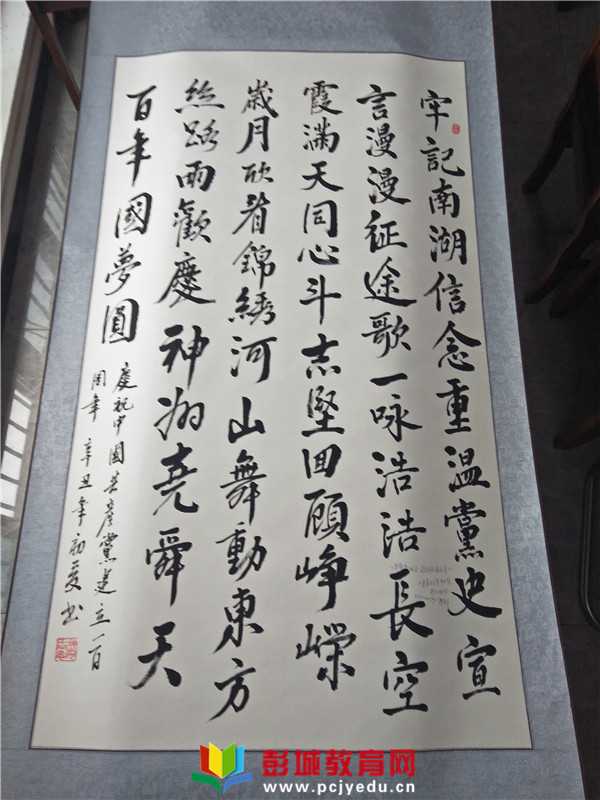 牢記南湖信念重温黨史宣
言漫漫征途歌一咏浩浩長空
霞满天同心斗志堅回顧崢嶸
歲月欣看錦綉河山舞動東方
丝路雨歡慶神州尧舜天
百年國夢圓
慶祝中國共產黨建立一百
周年 辛丑年初夏 书
彭城教育网
www.pcjyedu.cn